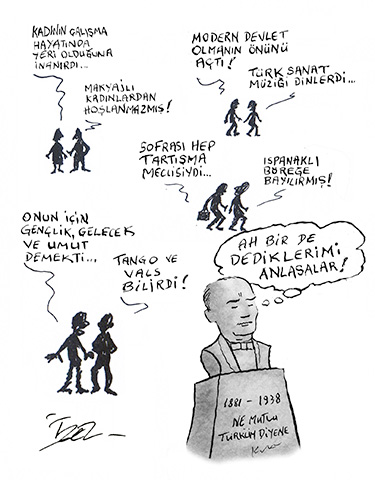 KADININ ÇALIŞMA
HAYATINDA
YERİ OLDUĞUNA
İNANIRDI...
MAKYAJLI
KADINLARDAN
HOŞLANMAZMIŞ!
MODERN DEVLET
OLMANIN ÖNÜNÜ
AÇTI!
TÜRK SANAT
MÜZİĞİ DİNLERDİ...
SOFRASI HEP
TARTIŞMA
MECLİSİYDİ...
ISPANAKLI
BÖREĞE
BAYILIRMIŞ!
ONUN İÇİN
GENÇLİK, GELECEK
VE UMUT
DEMEKTİ...
TANGO VE
VALS
BİLİRDİ!
AH BİR DE
DEDİKLERİMİ
ANLASALAR!
1881 - 1938
NE MUTLU
TÜRKÜM DİYENE